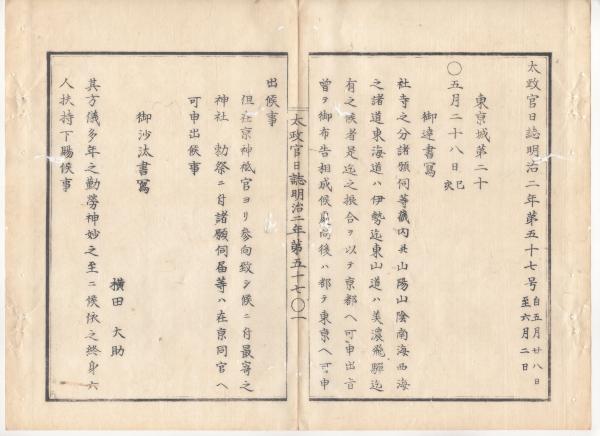 太政官日誌明治二年第五十七号 自五月廿八日 至六月二日
東京城第二十
〇五月二十八日 己亥
御達書寫
社寺之分諸願伺等畿内并山陽山陰南海西海
之諸道東海道ハ伊勢迄東山道ハ美濃飛驒迄
有之候者是迄之振合ヲ以テ京都ヘ可申出旨
曾ヲ御布告相成候處向後ハ都テ東京ヘ可申
太政官日誌明治二年第五十七〇一
出候事
但在京神祗官ヨリ参向致シ候ニ付最寄之
神社 勅祭ニ付諸願伺届等ハ在京同官ヘ
可申出候事
御沙汰書寫
横田 大助
其方儀多年之勤勞神妙之至ニ候依之終身六
人扶持下賜候事